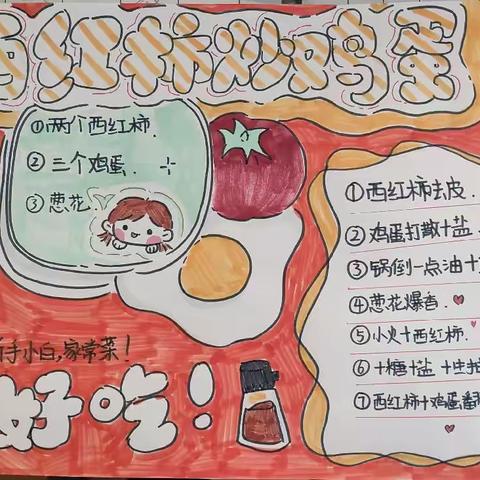 西红柿炒鸡蛋
①两个西红柿.
②三个鸡蛋.
③葱花.
①西红柿去皮.
②鸡蛋打散+盐.
③锅倒一点油+
④葱花爆香.
⑤小火+西红柿.
⑥+糖+盐+生抽
⑦西红柿+鸡蛋翻
新手小白,家常菜!
好吃!